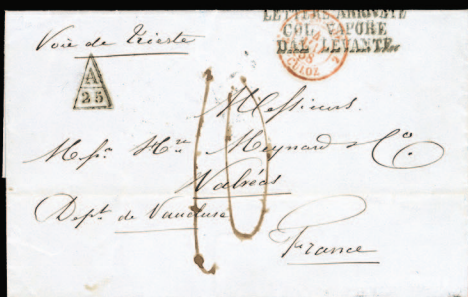 LETTERE ARRIVATE
COL VAPORE
DAL LEVANTE
Voie de Trieste
A
25
CULOZ
Messieurs
Meynard & Co.
Valréas
Dept. de Vaucluse
France
10